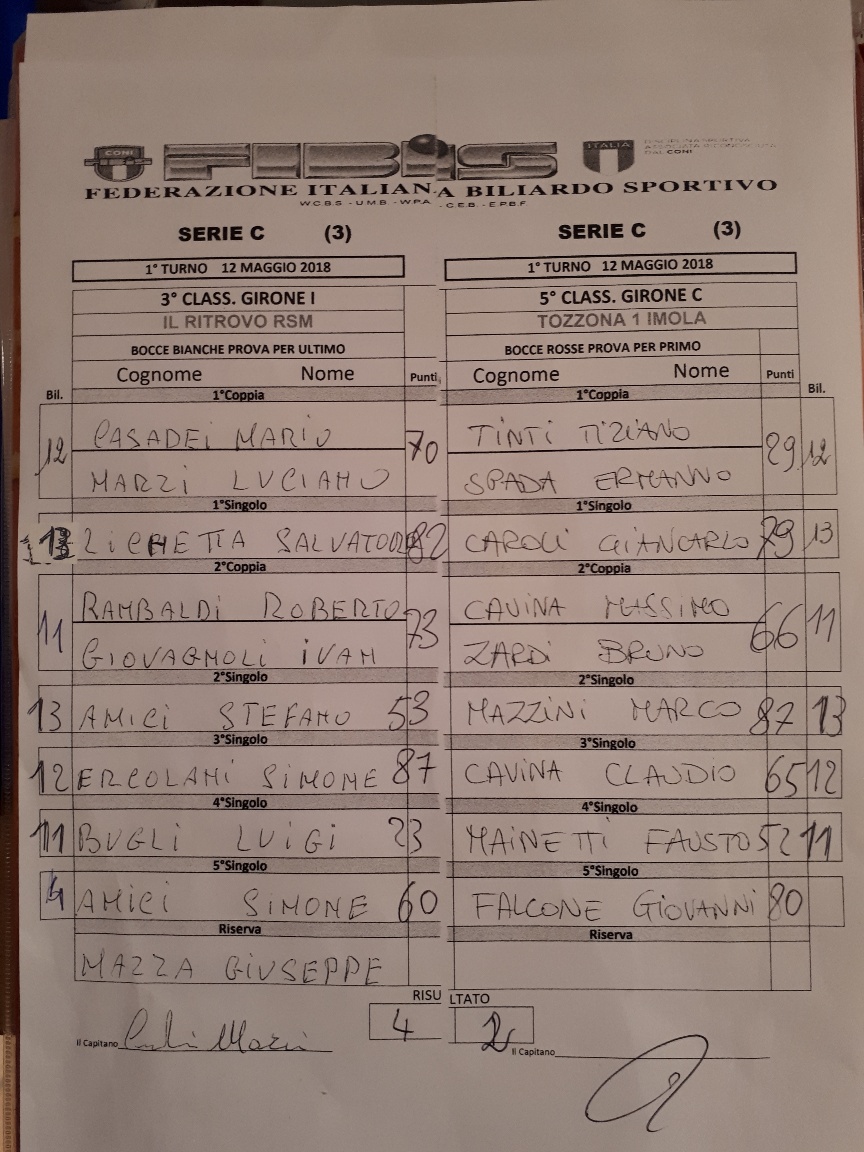 CONI
FIBiS
ITALIA
DAL CONI
FEDERAZIONE ITALIANA BILIARDO SPORTIVO
W.C.B.S. - U.M.B. - W.P.A. - C.E.B. - E.P.B.F.
SERIE C (3) SERIE C (3)
1° TURNO 12 MAGGIO 2018 1° TURNO 12 MAGGIO 2018
3° CLASS. GIRONE I 5° CLASS. GIRONE C
IL RITROVO RSM TOZZONA 1 IMOLA
BOCCE BIANCHE PROVA PER ULTIMO BOCCE ROSSE PROVA PER PRIMO
Cognome Nome Punti Cognome Nome Punti
Bil. 1°Coppia 1°Coppia Bil.
12 CASADEI MARIO 70 TINTI TIZIANO 29 12
MARZI LUCIANO SPADA ERMANNO
1°Singolo 1°Singolo
13 LICHETTA SALVATORE 82 CAROLI GIANCARLO 79 13
2°Coppia 2°Coppia
11 RAMBALDI ROBERTO 73 CAVINA MASSIMO 66 11
GIOVAGNOLI IVAN ZARDI BRUNO
2°Singolo 2°Singolo
13 AMICI STEFANO 53 MAZZINI MARCO 87 13
3°Singolo 3°Singolo
12 ERCOLANI SIMONE 87 CAVINA CLAUDIO 65 12
4°Singolo 4°Singolo
11 BUGLI LUIGI 23 MAINETTI FAUSTO 52 11
5°Singolo 5°Singolo
AMICI SIMONE 60 FALCONE GIOVANNI 80
Riserva Riserva
MAZZA GIUSEPPE
RISU LTATO
4 2
Il Capitano Il Capitano